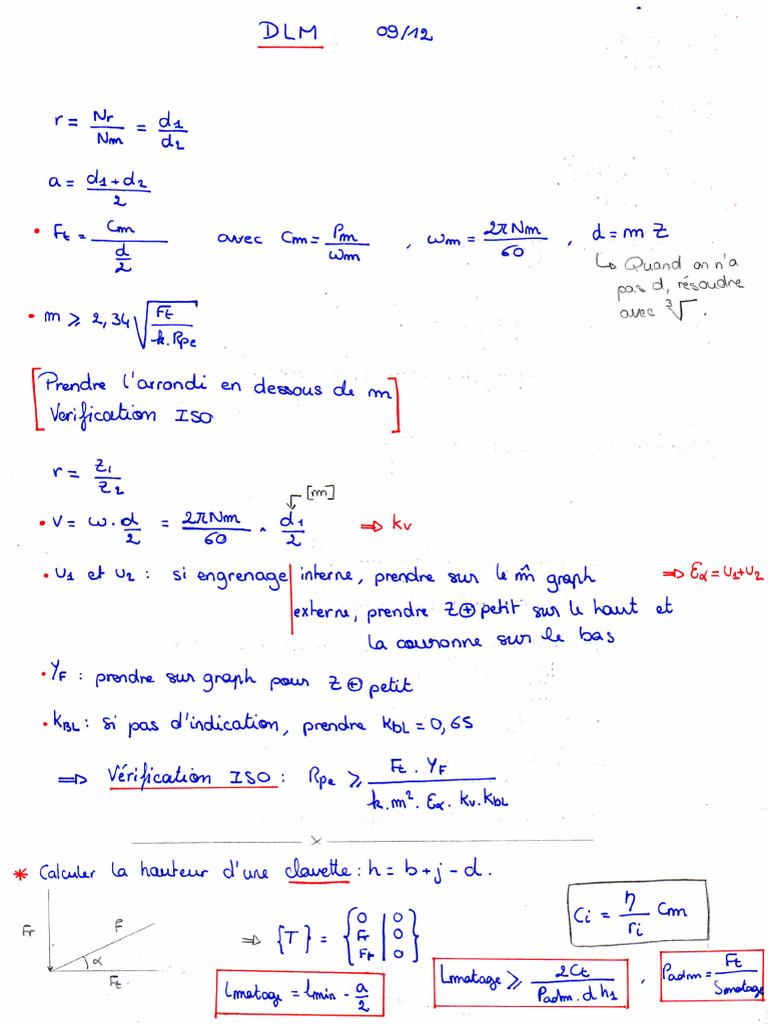 DLM 09/12
r = Nr/Nm = d1/d2
a = (d1+d2)/2
• Ft = Cm/(d/2) avec Cm = Pm/ωm , ωm = 2πNm/60 , d = m Z
↳ Quand on n'a
pas d, résoudre
avec ∛ .
• m ⩾ 2,34 √(Ft/(k.Rpe))
[Prendre l'arrondi en dessous de m
Verification ISO]
r = Z1/Z2
[m]
• V = ω.d/2 = 2πNm/60 . d1/2 ⇒ kv
• u1 et u2 : si engrenage | interne, prendre sur le m̂ graph ⇒ εα = u1+u2
externe, prendre Z ⊕ petit sur le haut et
la couronne sur le bas
• YF : prendre sur graph pour Z ⊕ petit
• kBL : si pas d'indication, prendre kbL = 0,65
⇒ Vérification ISO : Rpe ⩾ (Ft . YF)/(k.m². εα. kv.kbL)
x
* Calculer la hauteur d'une clavette : h = b + j - d.
Ci = η/ri Cm
Fr F α Ft
⇒ {T} = {0 | 0
Fr | 0
Ft | 0}
Lmatage = lmin - a/2
Lmatage ⩾ 2Ct/(Padm . d h1) , Padm = Ft/Smatage